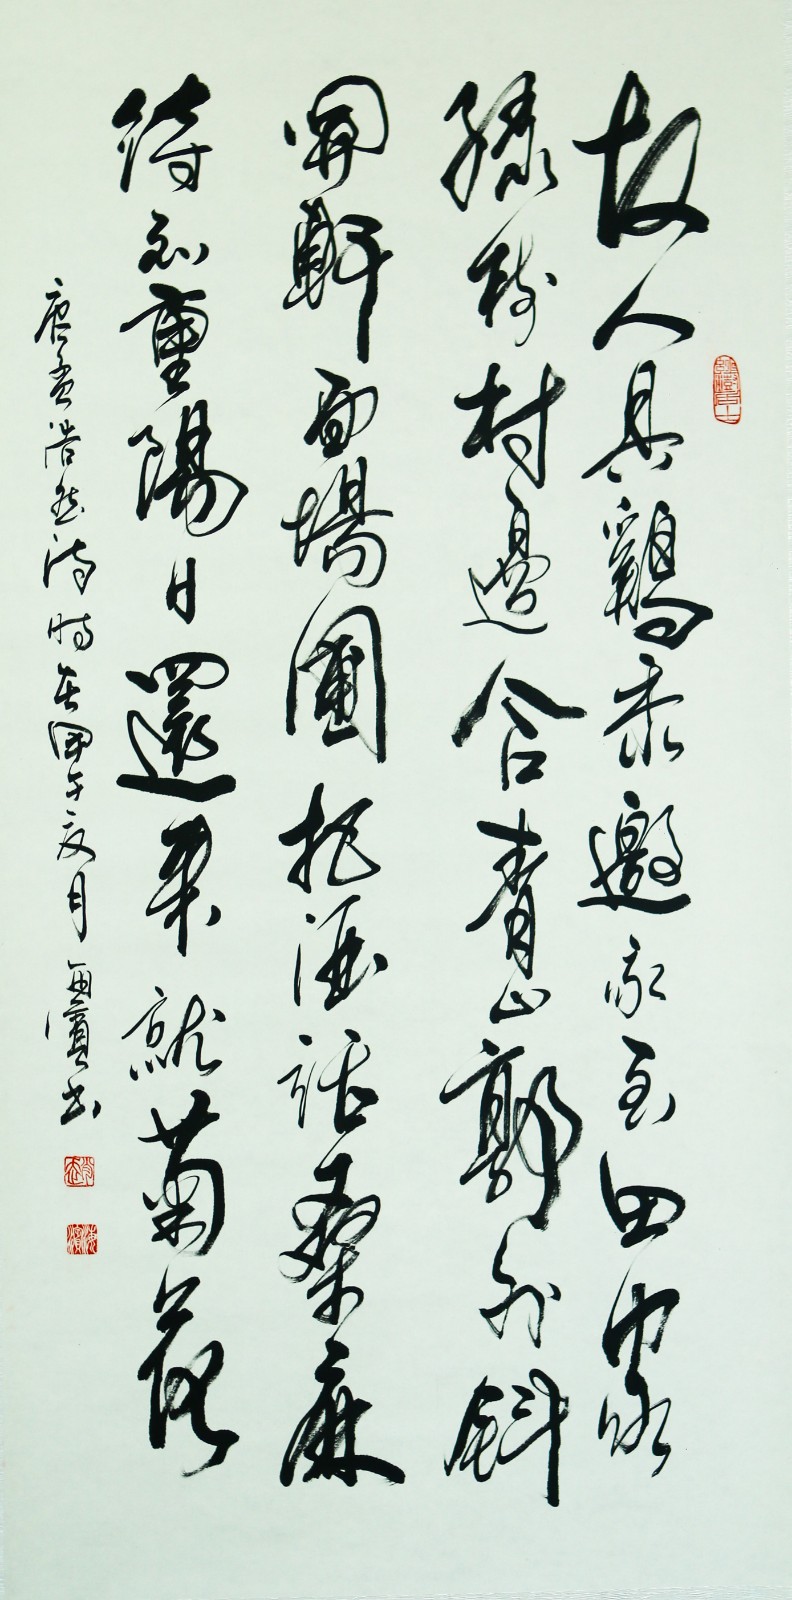 故人具鷄黍邀我至田家
綠樹村邊合青山郭外斜
開軒面場圃把酒話桑麻
待到重陽日還來就菊花
唐孟浩然詩時在甲午夏月海濱書
海濱